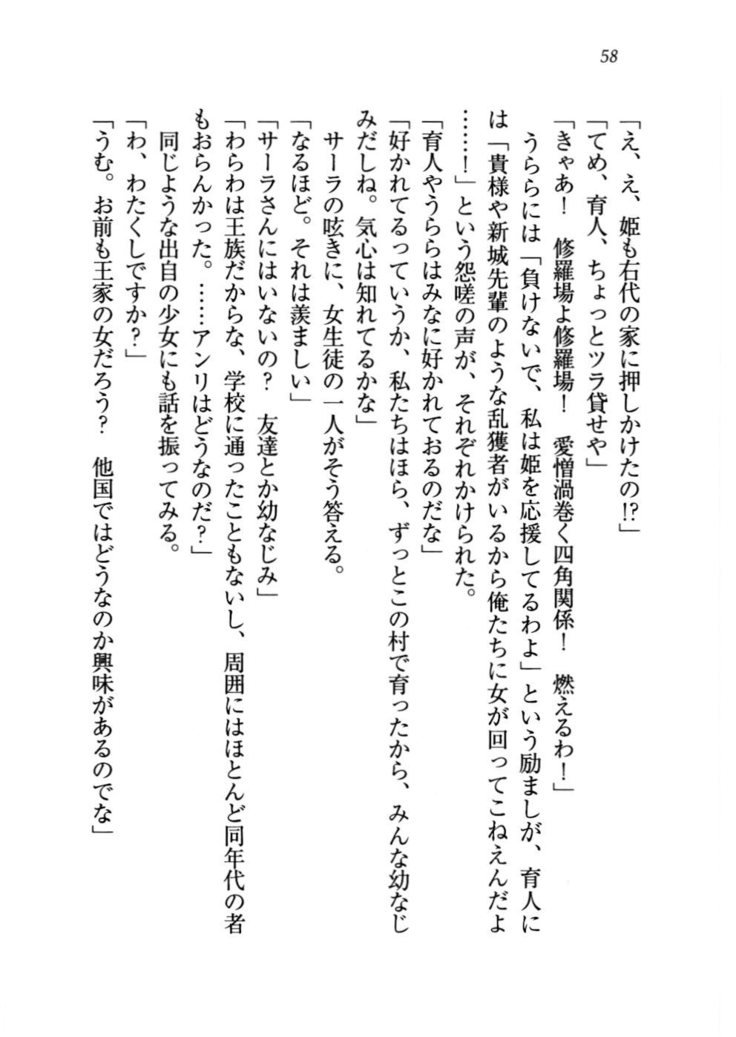 58
「え、え、姫も右代の家に押しかけたの!?」
「てめ、育人、ちょっとツラ貸せや」
「きゃあ！　修羅場よ修羅場！　愛憎渦巻く四角関係！　燃えるわ！」
　うららには「負けないで、私は姫を応援してるわよ」という励ましが、育人に
は「貴様や新城先輩のような乱獲者がいるから俺たちに女が回ってこねえんだよ
……！」という怨嗟の声が、それぞれかけられた。
「育人やうららはみなに好かれておるのだな」
「好かれてるっていうか、私たちはほら、ずっとこの村で育ったから、みんな幼なじ
みだしね。気心は知れてるかな」
　サーラの呟きに、女生徒の一人がそう答える。
「なるほど。それは羨ましい」
「サーラさんにはいないの？　友達とか幼なじみ」
「わらわは王族だからな、学校に通ったこともないし、周囲にはほとんど同年代の者
もおらんかった。……アンリはどうなのだ？」
　同じような出自の少女にも話を振ってみる。
「わ、わたくしですか？」
「うむ。お前も王家の女だろう？　他国ではどうなのか興味があるのでな」